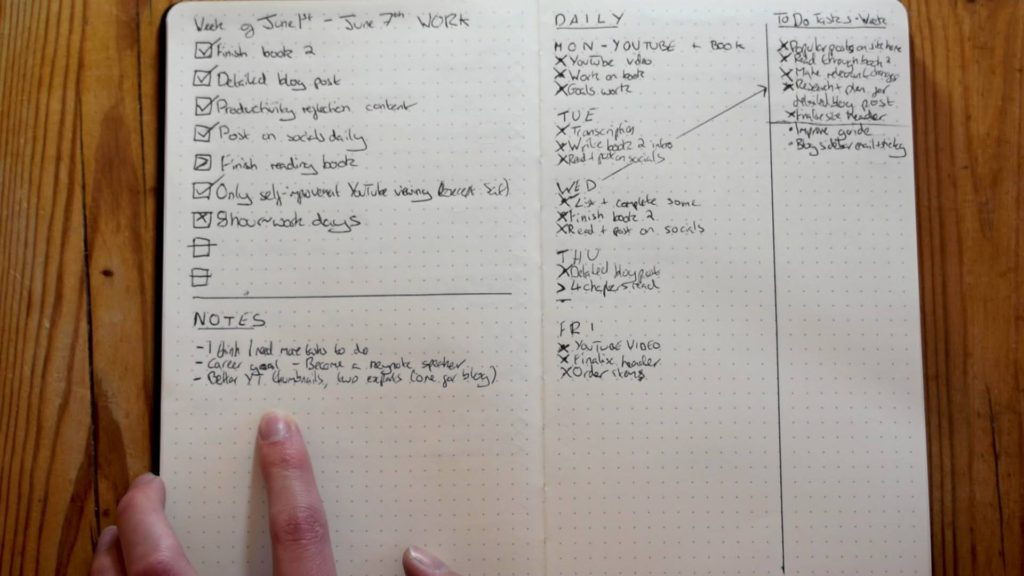 Week of June 1st - June 7th WORK
Finish book 2
Detailed blog post
Productivity reflection content
Post on socials daily
Finish reading book
Only self-improvement YouTube viewing (except
8 hour work days
NOTES
- I think I need more tasks to do
- Career goal - Become a keynote speaker
- Better YT thumbnails, two exports (one for blog)
DAILY
MON - YOUTUBE + BOOK
YouTube video
Work on book
Goals work
TUE
Transcription
Write book 2 intro
Read + post on socials
WED
List + complete some
Finish book 2
Read + post on socials
THU
Detailed blog post
> 4 chapters read
-
FRI
YOUTUBE VIDEO
Finalise header
Order items
To Do Tasks - Week
Popular posts on site
Read through book 2
Make relevant changes
Research + plan for
detailed blog post
Finalise header
• Improve guide
• Blog sidebar email + sticky